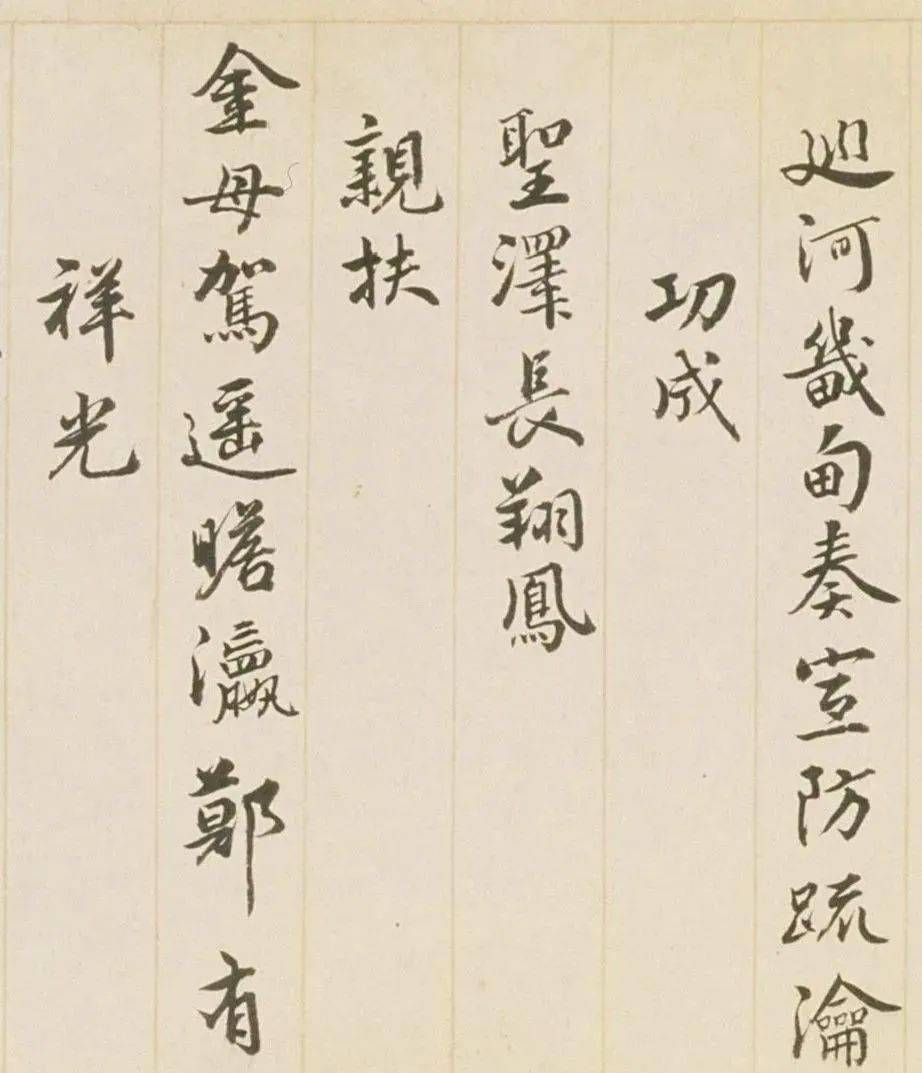 巡河畿甸奏宣防疏瀹
功成
聖澤長翔鳳
親扶
金母駕遥瞻瀛鄚有
祥光